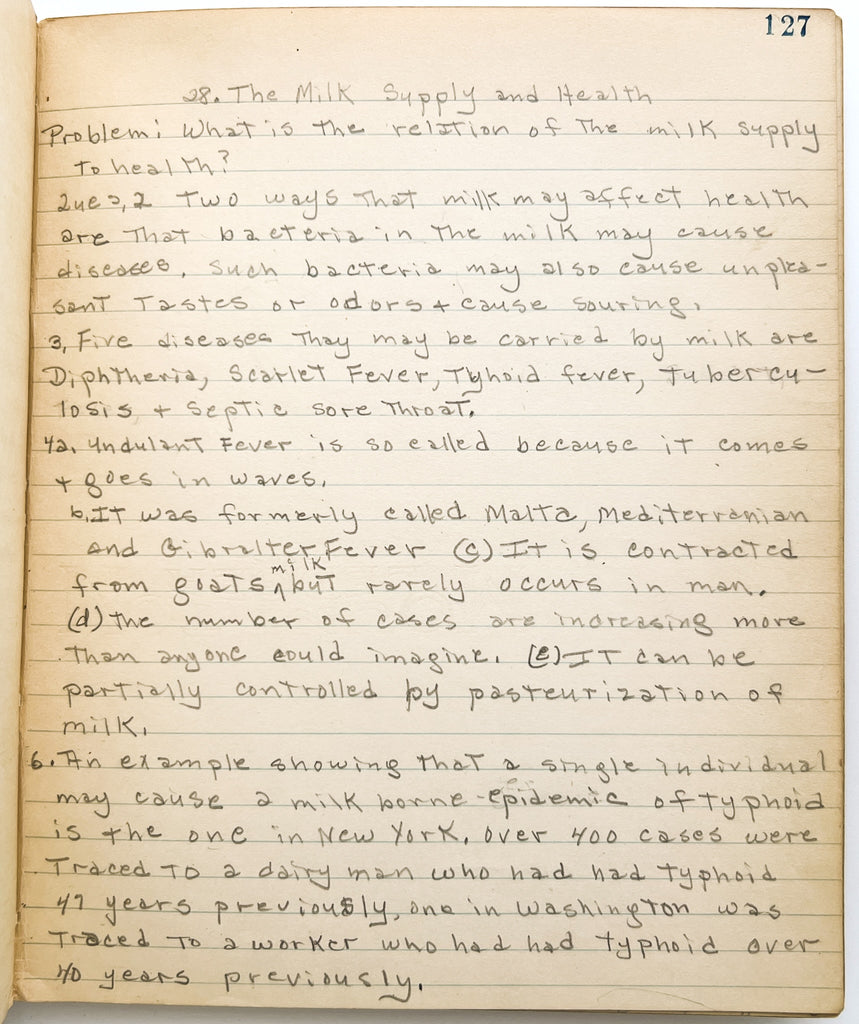 127
28. The Milk Supply and Health
Problem: What is the relation of the milk supply
to health?
Ques, 2 Two ways that milk may affect health
are that bacteria in the milk may cause
diseases. Such bacteria may also cause unplea-
sant tastes or odors + cause souring.
3, Five diseases thay may be carried by milk are
Diphtheria, Scarlet Fever, Tyhoid fever, Tubercu-
losis + Septic sore throat.
4a. Undulant Fever is so called because it comes
+ goes in waves.
b. It was formerly called Malta, Mediterranian
and Gibralter Fever (c) It is contracted
milk
from goats ^ but rarely occurs in man.
(d) the number of cases are increasing more
than anyone could imagine. (e) It can be
partially controlled by pasteurization of
milk.
6. An example showing that a single individual
may cause a milk borne epidemic of typhoid
is the one in New York. Over 400 cases were
Traced to a dairy man who had had typhoid
47 years previously, one in Washington was
Traced to a worker who had had typhoid over
40 years previously.